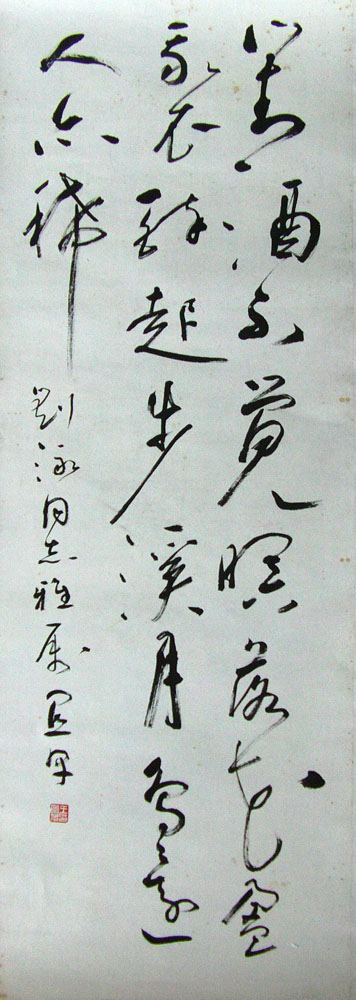 對酒不覺暝落花盈
我衣醉起步溪月鳥還
人亦稀
劉泳同志雅屬